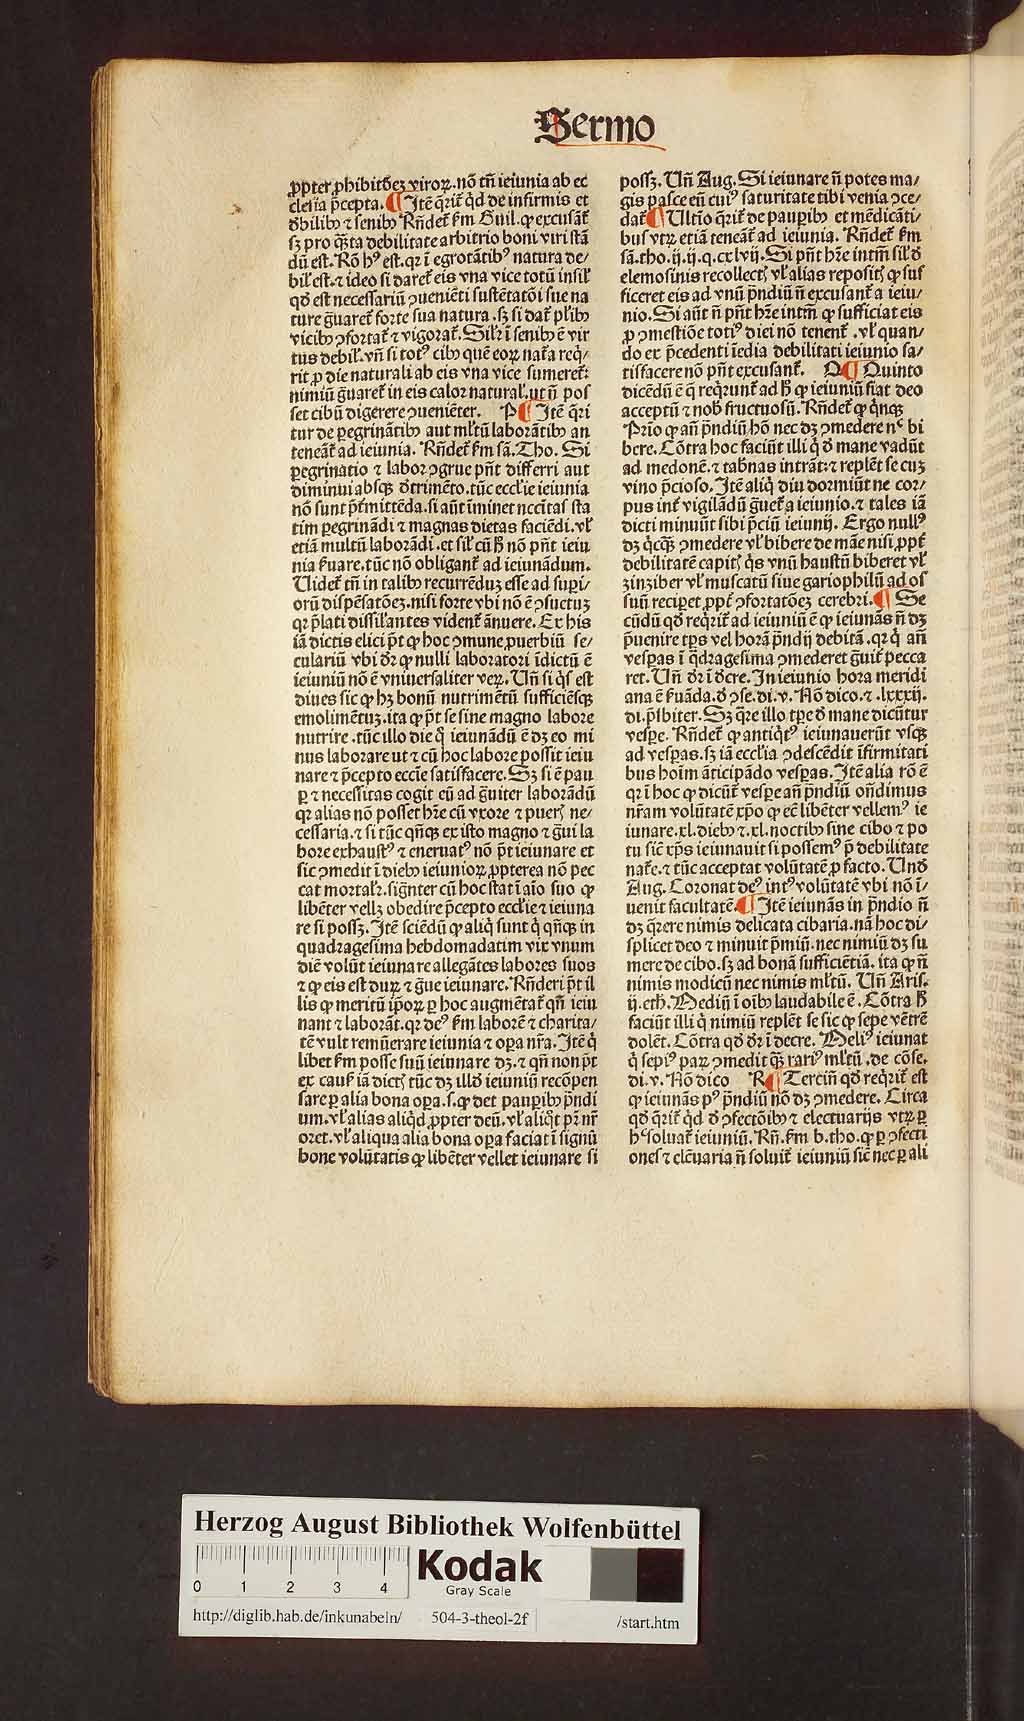 Sermo
ꝓpter ꝓhibitõeꝫ viroꝝ. nõ tñ ieiunia ab ec
clesia p̃cepta. ¶ Itẽ q̃rit᷑ qͥd de infirmis et
ꝺbilibꝰ ⁊ senibꝰ Rñdet᷑ ẜm Guil. ꝙ excusãt᷑
sꝫ pro q̃sta debilitate arbitrio boni viri stã
dũ est. Rõ hꝰ est. qꝛ ĩ egrotãtibꝰ natura de⸗
bil̓ est. ⁊ ideo si daret᷑ eis vna vice totũ insil̓
qꝺ est necessariũ ꝯueniẽti sustẽtatõi sue na
ture g̃uaret᷑ forte sua natura. sꝫ si dat᷑ pl̓ibꝰ
vicibꝰ ꝯfortat᷑ ⁊ vigorat᷑. Sil̓r ĩ senibꝰ ẽ vir
tus debil̓. vñ si totꝰ cibꝰ quẽ eoꝝ nat᷑a req̃⸗
rit ꝓ die naturali ab eis vna vice sumeret᷑:
nimiũ g̃uaret᷑ in eis calor natural̓. ut ñ pos
set cibũ digerere ꝯueniẽter. P ¶ Itẽ q̃ri
tur de peregrinãtibꝰ aut ml̓tũ laborãtibꝰ an
teneãt᷑ ad ieiunia. Rñdet᷑ ẜm sã. Tho. Si
ꝑegrinatio ⁊ labor ꝯgrue pñt differri aut
diminui absqꝫ ꝺtrimẽto. tũc eccl̓ie ieiunia
nõ sunt p̃t᷑mittẽda. si aũt ĩminet nccĩtas sta
tim ꝑegrinãdi ⁊ magnas dietas faciẽdi. vl̓
etiã multũ laborãdi. et sil̓ cũ ħ nõ pñt ieiu
nia ẜuare. tũc nõ obligant᷑ ad ieiunãdum.
Uidet᷑ tñ in talibꝰ recurrẽduꝫ esse ad suꝑi⸗
orũ dispẽsatõeꝫ. nisi forte vbi nõ ẽ ꝯsuctuꝫ
qꝛ p̃lati dissil̓antes vident᷑ ãnuere. Ex his
iã dictis elici p̃t ꝙ hoc ꝯmune ꝓuerbiũ se⸗
culariũ vbi ꝺꝛ ꝙ nulli laboratori ĩdictũ ẽ
ieiuniũ nõ ẽ vniuersaliter veꝝ. Uñ si qͥs est
diues sic ꝙ hꝫ bonũ nutrimẽtũ sufficiẽsqꝫ
emolimẽtuꝫ. ita ꝙ p̃t se sine magno labore
nutrire. tũc illo die qͥ ieiunãdũ ẽ dꝫ eo mi
nus laborare ut ⁊ cũ hoc labore possit ieiu
nare ⁊ p̃cepto eccñie satisfacere. Sꝫ si ẽ pau
ꝑ ⁊ necessitas cogit eũ ad g̃uiter laborãdũ
qꝛ alias nõ posset hr̃e cũ vxore ⁊ puerꝭ ne⸗
cessaria. ⁊ si tũc qñqꝫ ex isto magno ⁊ g̃ui la
bore exhaustꝰ ⁊ eneruatꝰ nõ p̃t ieiunare et
sic ꝯmedit ĩ diebꝰ ieiunioꝝ ꝓpterea nõ pec
cat mortal̓r. sign̄ter cũ hoc stat ĩ aĩo suo ꝙ
libẽter vellꝫ obedire p̃cepto eccl̓ie ⁊ ieiuna
re si possꝫ. Itẽ sciẽdũ ꝙ aliqͥ sunt qͥ qñqꝫ in
quadragesima hebdomadatim vix vnum
diẽ volũt ieiunare allegãtes labores suos
⁊ ꝙ eis est duꝝ ⁊ g̃ue ieiunare. Rñderi p̃t il
lis ꝙ meritũ ip̃oꝝ ꝑ hoc augmẽtat᷑ qñ ieiu
nant ⁊ laborãt. qꝛ deꝰ ẜm laborẽ ⁊ charita⸗
tẽ vult remũerare ieiunia ⁊ oꝑa nr̃a. Itẽ qͥ
libet ẜm posse suũ ieiunare dꝫ. ⁊ qñ non p̃t
ex causꝭ iã dictꝭ tũc dꝫ illd̓ ieiuniũ recõpen
sare ꝑ alia bona oꝑa. s. ꝙ det pauꝑibꝰ p̃ndi
um. vl̓ alias aliqͥd ꝓpter deũ. vl̓ aliqͥt pr̃ nr̃
oret. vl̓ aliqua alia bona oꝑa faciat ĩ signũ
bone volũtatis ꝙ libẽter vellet ieiunare si
possꝫ. Uñ Aug. Si ieiunare ñ potes ma⸗
gis pasce eũ cuiꝰ saturitate tibi venia ꝯce⸗
dat᷑ ¶ Ultĩo q̃rit᷑ de pauꝑibꝰ et mẽdicãti⸗
bus vtꝝ etiã teneãt᷑ ad ieiunia. Rñdet᷑ ẜm
sã. tho. ij. ij. q. cxlvij. Si pñt hr̃e intm̃ sil̓ ꝺ
elemosinis recollectꝭ vl̓ alias repositꝭ ꝙ suf
ficeret eis ad vnũ p̃ndiũ ñ excusant᷑ a ieiu⸗
nio. Si aũt ñ pñt hr̃e intm̃ ꝙ sufficiat eis
ꝓ ꝯmestiõe totiꝰ diei nõ tenent᷑. vl̓ quan⸗
do ex p̃cedenti ĩedia debilitati ieiunio sa⸗
tisfacere nõ pñt excusant᷑. Q ¶ Quinto
dicẽdũ ẽ q̃ req̃runt᷑ ad ħ ꝙ ieiuniũ fiat deo
acceptũ ⁊ nob̓ fructuosũ. Rñdet᷑ ꝙ qͥnqꝫ
Prĩo ꝙ añ p̃ndiũ hõ nec dꝫ ꝯmedere nᶜ bi
bere. Cõtra hoc faciũt illi qͥ ꝺ mane vadũt
ad medonẽ. ⁊ tab̃nas intrãt: ⁊ replẽt se cuꝫ
vino p̃cioso. Itẽ aliqͥ diu dormiũt ne cor⸗
pus int᷑ vigilãdũ g̃uet᷑ a ieiunio. ⁊ tales iã
dicti minuũt sibi p̃ciũ ieiunij. Ergo nullꝰ
dꝫ qͥcqꝫ ꝯmedere vl̓ bibere de mãe nisi ꝓpt᷑
debilitatẽ capitꝭ qͥs vnũ haustũ biberet vl̓
zinziber vl̓ muscatũ siue gariophilũ ad os
suũ reciꝑet ꝓpt᷑ ꝯfortatõeꝫ cerebri. ¶ Se
cũdũ qꝺ req̃rit᷑ ad ieiuniũ ẽ ꝙ ieiunãs ñ dꝫ
p̃uenire tꝑs vel horã p̃ndij debitã. qꝛ qͥ añ
vesꝑas ĩ q̃dragesima ꝯmederet g̃uit᷑ pecca
ret. Uñ ꝺꝛ ĩ ꝺcre. In ieiunio hora meridi
ana ẽ ẜuãda. ꝺ ꝯse. di. v. Nõ dico. ⁊. lxxxij.
di. p̃sbiter. Sꝫ q̃re illo tꝑe ꝺ mane dicũtur
vesꝑe. Rñdet᷑ ꝙ antiqͥtꝰ ieiunauerũt vsqꝫ
ad vesꝑas. sꝫ iã eccl̓ia ꝯdescẽdit ĩfirmitati
bus hoĩm ãticipãdo vesꝑas. Itẽ alia rõ ẽ
qꝛ ĩ hoc ꝙ dicũt᷑ vesꝑe añ p̃ndiũ oñdimus
nr̃am volũtatẽ xp̃o ꝙ eẽt libẽter vellemꝰ ie
iunare. xl. diebꝰ ⁊. xl. noctibꝰ sine cibo ⁊ po
tu sic̃ xp̃s ieiunauit si possemꝰ p̃ debilitate
nat᷑e. ⁊ tũc acceptat volũtatẽ ꝓ facto. Unꝺ
Aug. Coronat deꝰ intꝰ volũtatẽ vbi nõ ĩ⸗
uenit facultatẽ. ¶ Itẽ ieiunãs in p̃ndio ñ
dꝫ q̃rere nimis delicata cibaria. nã hoc di⸗
splicet deo ⁊ minuit p̃miũ. nec nimiũ dꝫ su
mere de cibo. sꝫ ad bonã sufficiẽtiã. ita ꝙ ñ
nimis modicũ nec nimis ml̓tũ. Uñ Aris.
ij. eth. Mediũ ĩ oĩbꝰ laudabile ẽ. Cõtra ħ
faciũt illi qͥ nimiũ replẽt se sic ꝙ sepe vẽtrẽ
dolẽt. Cõtra qꝺ ꝺꝛ ĩ decre. Meliꝰ ieiunat
qͥ sepiꝰ paꝝ ꝯmedit q̃ꝫ rariꝰ ml̓tũ. de cõse.
di. v. Nõ dico R ¶ Terciũ qꝺ req̃rit᷑ est
ꝙ ieiunãs pꝰ p̃ndiũ nõ dꝫ ꝯmedere. Circa
qꝺ q̃rit᷑ qͥd ꝺ ꝯfectõibꝰ ⁊ electuarijs vtꝝ ꝑ
hᶜ soluat᷑ ieiuniũ. Rñ. ẜm b. tho. ꝙ ꝑ ꝯfecti
ones ⁊ elc̃uaria ñ soluit᷑ ieiuniũ sic̃ nec ꝑ ali
Herzog August Bibliothek Wolfenbüttel
0 1 2 3 4
Kodak
Gray Scale
http://diglib.hab.de/inkunabeln/ 504-3-theol-2f /start.htm